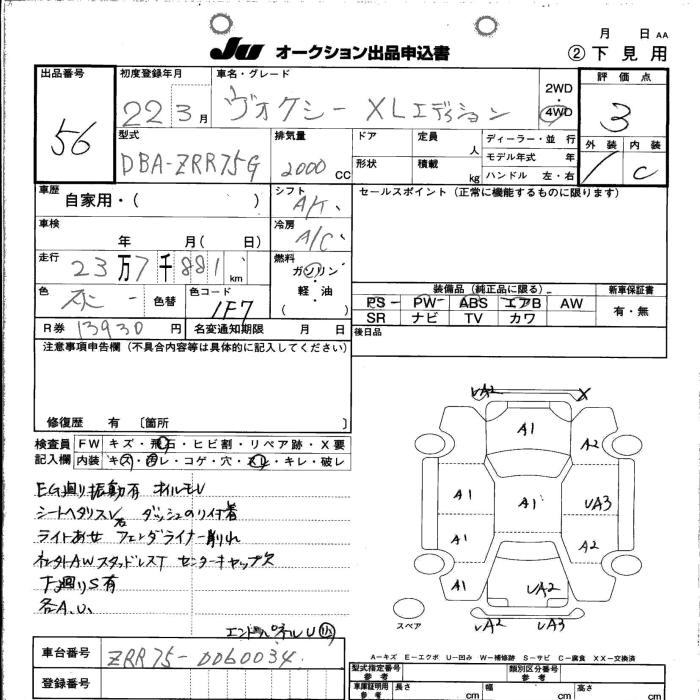 月 日 AA
JU オークション出品申込書 ②下見用
出品番号 初度登録年月 車名・グレード 2WD 評価点
56 22 3月 ヴォクシー XLエディション 4WD 3
型式 排気量 ドア 定員 人 ディーラー・並行 外装 内装
DBA-ZRR75G 2000 CC 形状 積載 kg モデル年式 年 C
ハンドル 左・右
車歴 シフト セールスポイント(正常に機能するものに限ります)
自家用・( ) A/T
車検 冷房
年 月( 日) A/C
走行 燃料
23万7千881km ガソリン・軽油
( )
色 色替 色コード 装備品(純正品に限る) 新車保証書
1F7 PS PW ABS エアB AW 有・無
SR ナビ TV カワ
R券 13930円 名変通知期限 月 日 後日品
注意事項申告欄(不具合内容等は具体的に記入してください)
修復歴 有 〔箇所 〕
検査員 FW キズ・飛石・ヒビ割・リペア跡・X要
記入欄 内装 キズ・汚レ・コゲ・穴・スレ・キレ・破レ
EG廻り振動有 オイルモレ
シートヘタリスレ ダッシュのり付着
ライトあせ フェンダライナー削れ
AWスタッドレスT センターキャップ欠
下廻りS有
各A.U.
エンドパネルU
車台番号 ZRR75-0060034
登録番号
UA2 X
A1 A2
A1 A1 UA3
A1 A2
A1 UA2
スペア UA2 UA3
A-キズ E-エクボ U-凹み W-補修跡 S-サビ C-腐食 XX-交換済
型式指定番号 参考 類別区分番号 参考
車庫証明用 参考 長さ cm 幅 cm 高さ cm